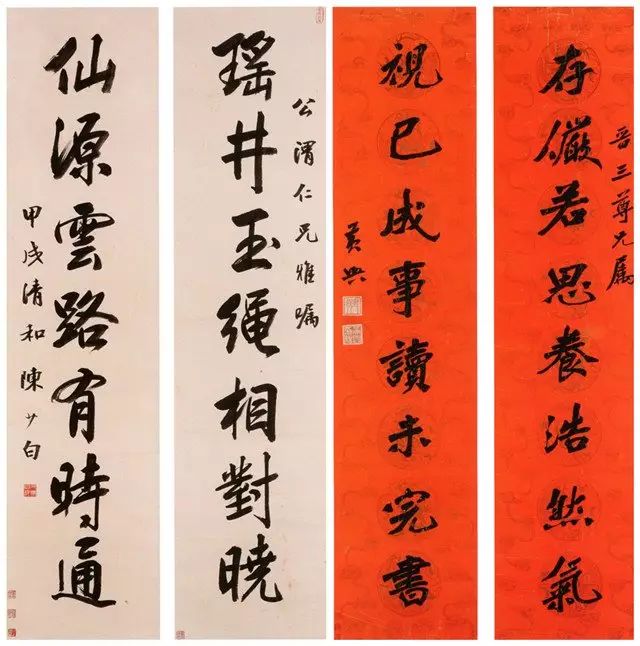 晋三尊兄属
存儼若思養浩然氣
視已成事讀未完書
黄興
公渭仁兄雅嘱
瑶井玉繩相對曉
仙源雲路有時通
甲戌清和陳少白